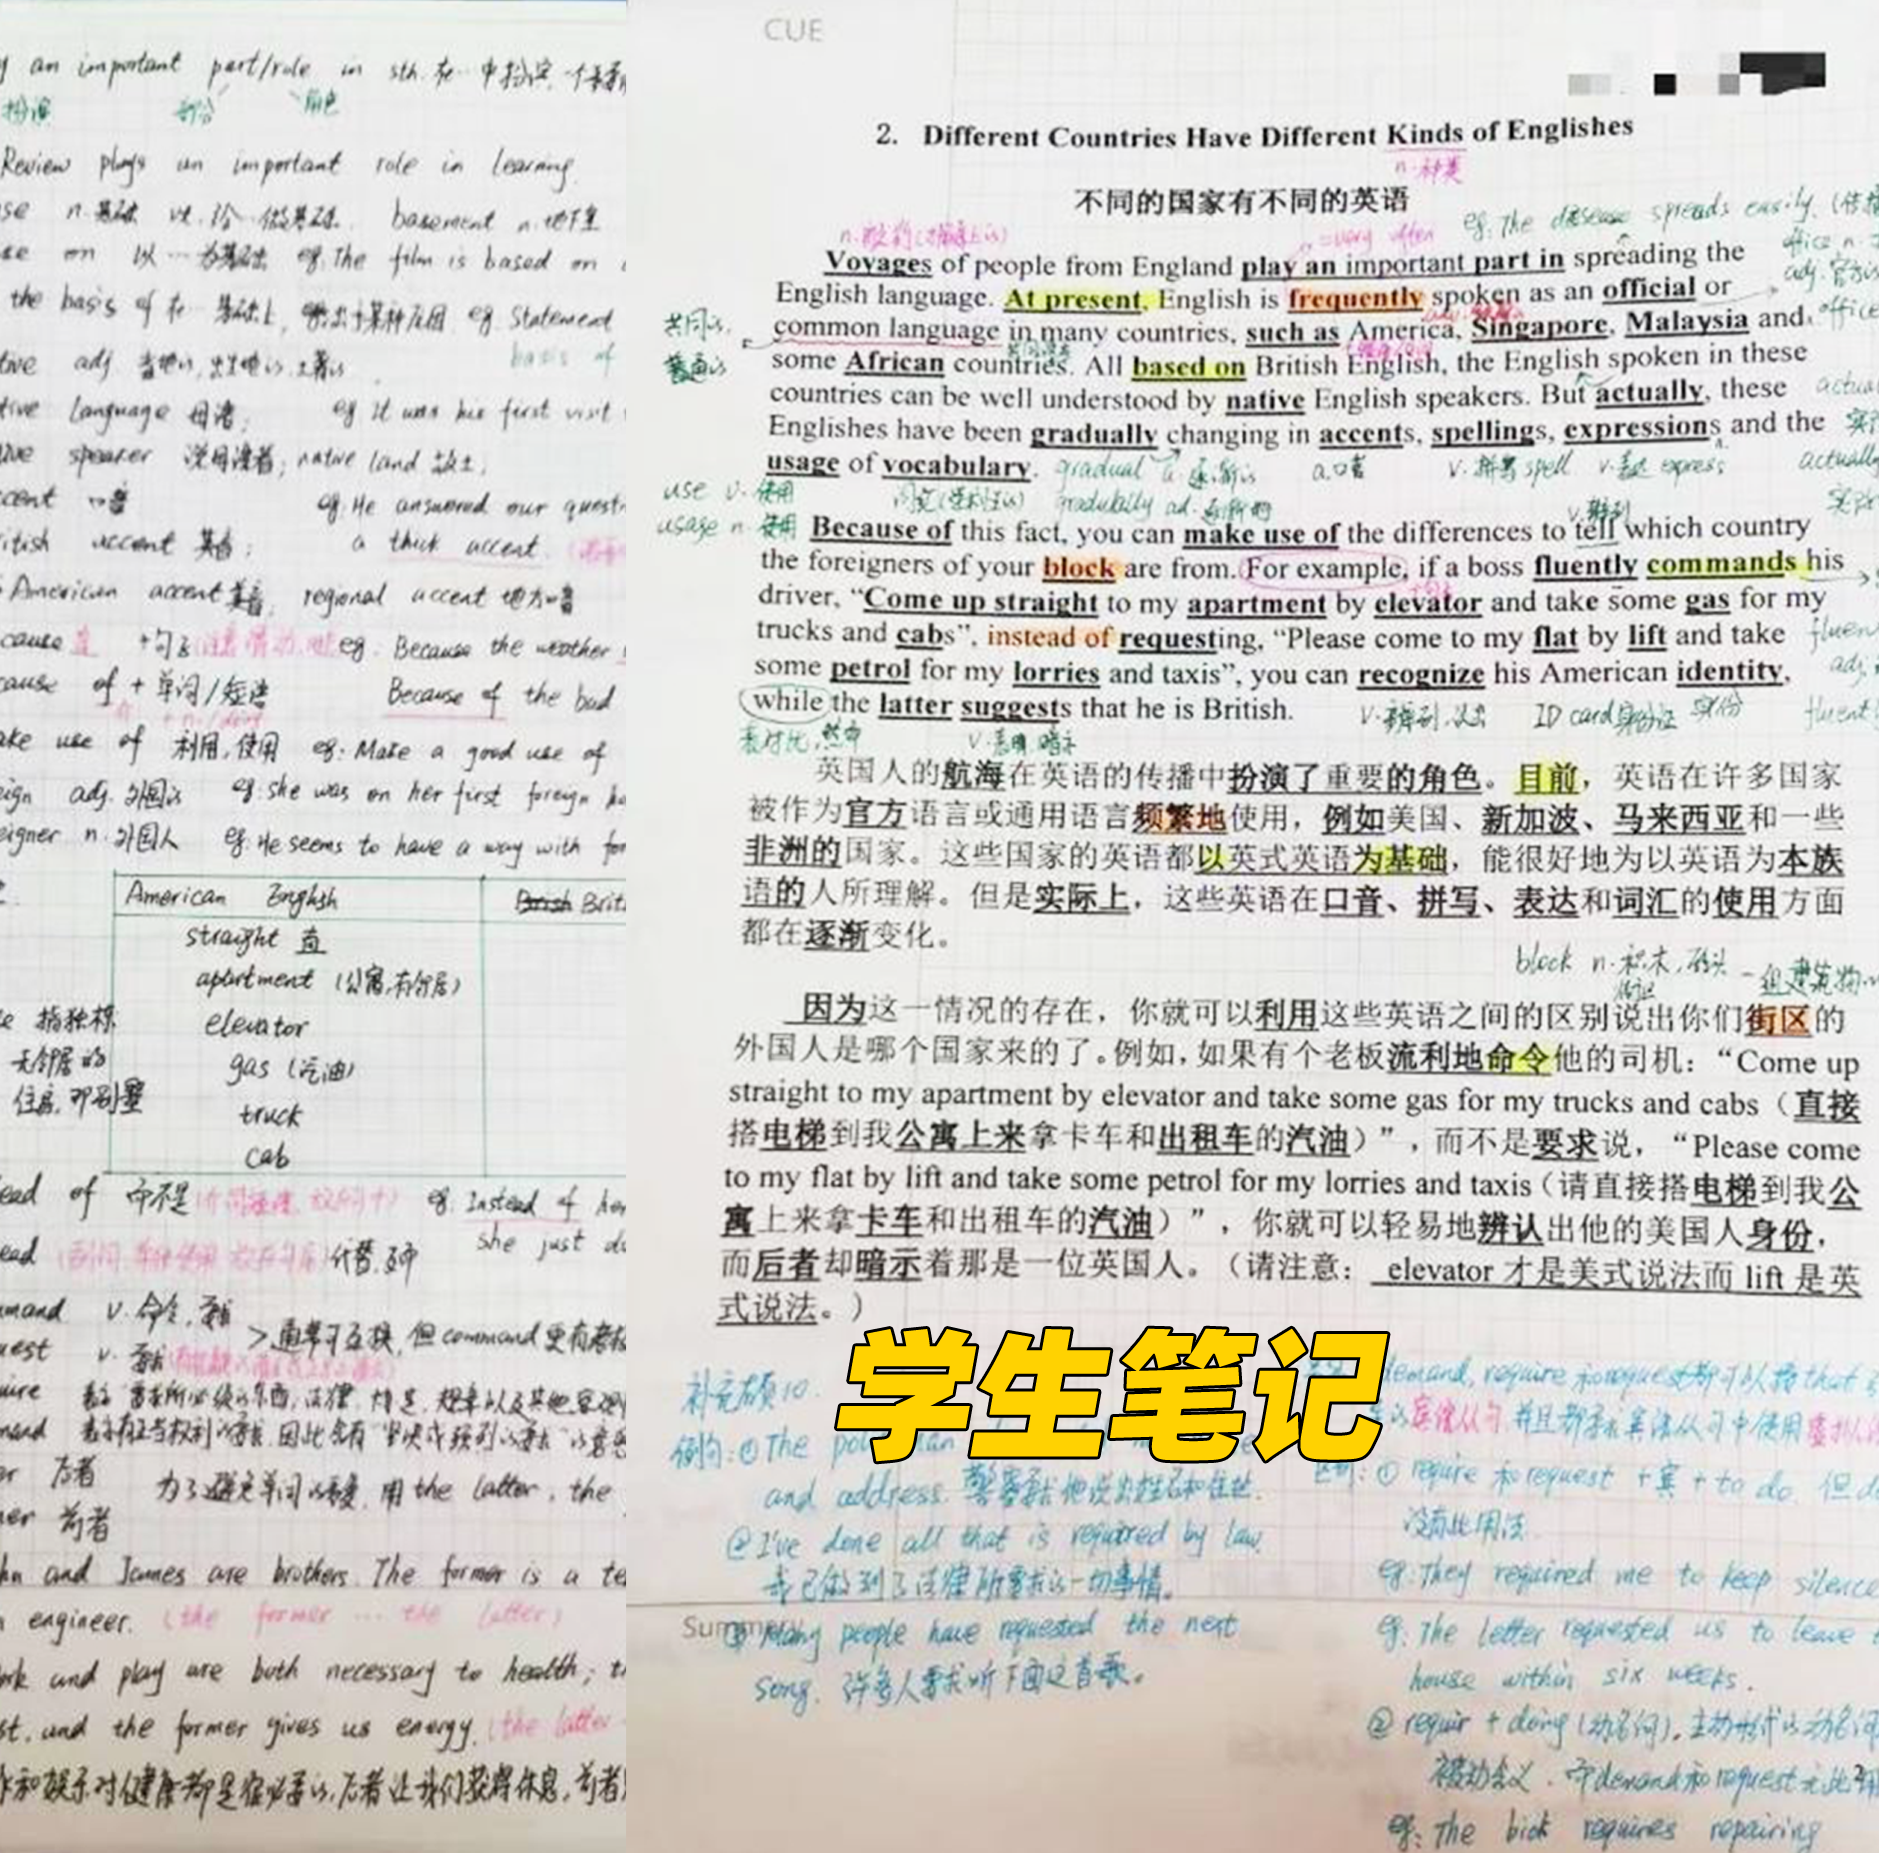 y an important part/role in sth. 在…中扮演一个重要
扮演 部分 角色
Review plays an important role in learning.
se n.基础 vt. 给…做基础. basement n.地下室
se on 以…为基础 eg.The film is based on
the basis of 在…基础上, 出于某种原因 eg. Statement
basis of
tive adj. 当地的,出生地的,土著的
tive language 母语; eg It was his first visit
tive speaker 说母语者; native land 故土;
ccent 口音 eg.He answered our quest
itish accent 英音; a thick accent.
American accent 美音, regional accent 地方口音
cause 连 +句子 eg. Because the weather
cause of + 单词/短语 Because of the bad
介 + n./doing
ake use of 利用,使用 eg: Make a good use of
eign adj. 外国的 eg.she was on her first foreign ho
eigner n.外国人 eg.He seems to have a way with for
American English Brit
straight 直
apartment (公寓,有邻居)
elevator
gas (汽油)
truck
cab
e 指独栋
无邻居的
住房,即别墅
ead of 而不是 eg. Instead of he
she just d
ead 代替,反而
mand v. 命令,要求
uest v. 要求
>通常可互换,但command更有
uire
mand
er 后者 为了避免单词的重复,用the latter, the
mer 前者
hn and James are brothers. The former is a te
n engineer. (the former … the latter)
ork and play are both necessary to health; t
st, and the former gives us energy. (the latter
作和娱乐对健康都是很必要的,后者让我们获得休息,前者
CUE
2. Different Countries Have Different Kinds of Englishes
n.种类
不同的国家有不同的英语
eg.The disease spreads easily. (传播
n.航海(海上的) =very often
Voyages of people from England play an important part in spreading the
English language. At present, English is frequently spoken as an official or
common language in many countries, such as America, Singapore, Malaysia and
some African countries. All based on British English, the English spoken in these
countries can be well understood by native English speakers. But actually, these
Englishes have been gradually changing in accents, spellings, expressions and the
usage of vocabulary.
office n.
adj. 官方的
office
共同的,
普通的
actua
实
actually
gradual a 逐渐的 a.口音 v.拼写 spell v.表达 express
use v. 使用
usage n. 使用
gradually ad.逐渐地
v.辨别
Because of this fact, you can make use of the differences to tell which country
the foreigners of your block are from. For example, if a boss fluently commands his
driver, “Come up straight to my apartment by elevator and take some gas for my
trucks and cabs”, instead of requesting, “Please come to my flat by lift and take
some petrol for my lorries and taxis”, you can recognize his American identity,
while the latter suggests that he is British.
fluen
adj.
fluent
表对比,然而 v.表明,暗示 v.辨别,认出 ID card身份证 身份
英国人的航海在英语的传播中扮演了重要的角色。目前，英语在许多国家
被作为官方语言或通用语言频繁地使用，例如美国、新加波、马来西亚和一些
非洲的国家。这些国家的英语都以英式英语为基础，能很好地为以英语为本族
语的人所理解。但是实际上，这些英语在口音、拼写、表达和词汇的使用方面
都在逐渐变化。
block n.积木,码头 一组建筑物
街区
因为这一情况的存在，你就可以利用这些英语之间的区别说出你们街区的
外国人是哪个国家来的了。例如，如果有个老板流利地命令他的司机：“Come up
straight to my apartment by elevator and take some gas for my trucks and cabs（直接
搭电梯到我公寓上来拿卡车和出租车的汽油）”，而不是要求说，“Please come
to my flat by lift and take some petrol for my lorries and taxis（请直接搭电梯到我公
寓上来拿卡车和出租车的汽油）”，你就可以轻易地辨认出他的美国人身份，
而后者却暗示着那是一位英国人。（请注意： elevator 才是美式说法而 lift 是英
式说法。）
学生笔记
补充页10.
例句: ① The
and address. 警察要求他说出姓名和住址.
② I've done all that is required by law.
我已做到了法律所要求的一切事情。
Summary
③ Many people have requested the next
song. 许多人要求听下面这首歌。
demand, require 和request都可以接that
的宾语从句,并且都要求宾语从句中使用虚拟
区别: ① require 和 request + 宾 + to do, 但d
没有此用法.
eg: They required me to keep silence
eg: The letter requested us to leave
house within six weeks.
② requir + doing (动名词), 主动形式的动名词
被动含义. 而demand和request无此用
eg: The bick requires repairing